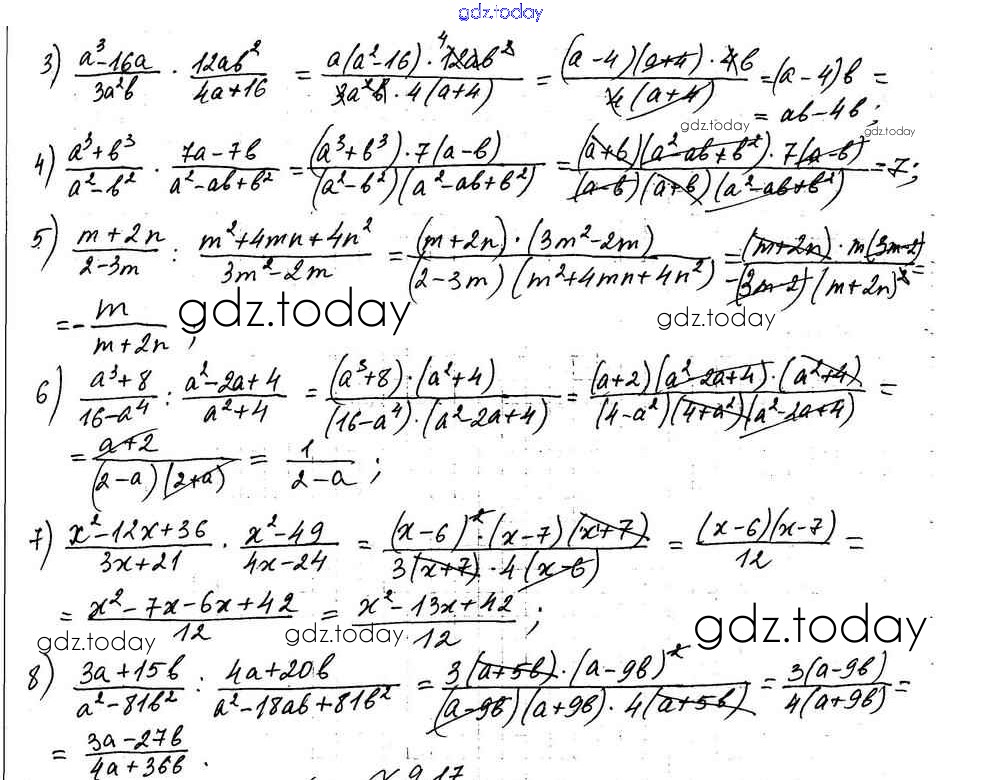 gdz.today
3) (a³-16a)/(3a²b) · (12ab²)/(4a+16) = (a(a²-16)·⁴12ab²)/(3a²b·4(a+4)) = ((a-4)(a+4)·4b)/(4(a+4)) = (a-4)b =
= ab-4b;
gdz.today gdz.today
4) (a³+b³)/(a²-b²) · (7a-7b)/(a²-ab+b²) = ((a³+b³)·7(a-b))/((a²-b²)(a²-ab+b²)) = ((a+b)(a²-ab+b²)·7(a-b))/((a-b)(a+b)(a²-ab+b²)) = 7;
5) (m+2n)/(2-3m) : (m²+4mn+4n²)/(3m²-2m) = ((m+2n)·(3m²-2m))/((2-3m)(m²+4mn+4n²)) = ((m+2n)·m(3m-2))/(-(3m-2)(m+2n)²) =
= -m/(m+2n);
gdz.today gdz.today
6) (a³+8)/(16-a⁴) : (a²-2a+4)/(a²+4) = ((a³+8)·(a²+4))/((16-a⁴)·(a²-2a+4)) = ((a+2)(a²-2a+4)·(a²+4))/((4-a²)(4+a²)(a²-2a+4)) =
= (a+2)/((2-a)(2+a)) = 1/(2-a);
7) (x²-12x+36)/(3x+21) · (x²-49)/(4x-24) = ((x-6)²·(x-7)(x+7))/(3(x+7)·4(x-6)) = ((x-6)(x-7))/12 =
= (x²-7x-6x+42)/12 = (x²-13x+42)/12;
gdz.today gdz.today gdz.today
8) (3a+15b)/(a²-81b²) : (4a+20b)/(a²-18ab+81b²) = (3(a+5b)·(a-9b)²)/((a-9b)(a+9b)·4(a+5b)) = (3(a-9b))/(4(a+9b)) =
= (3a-27b)/(4a+36b).